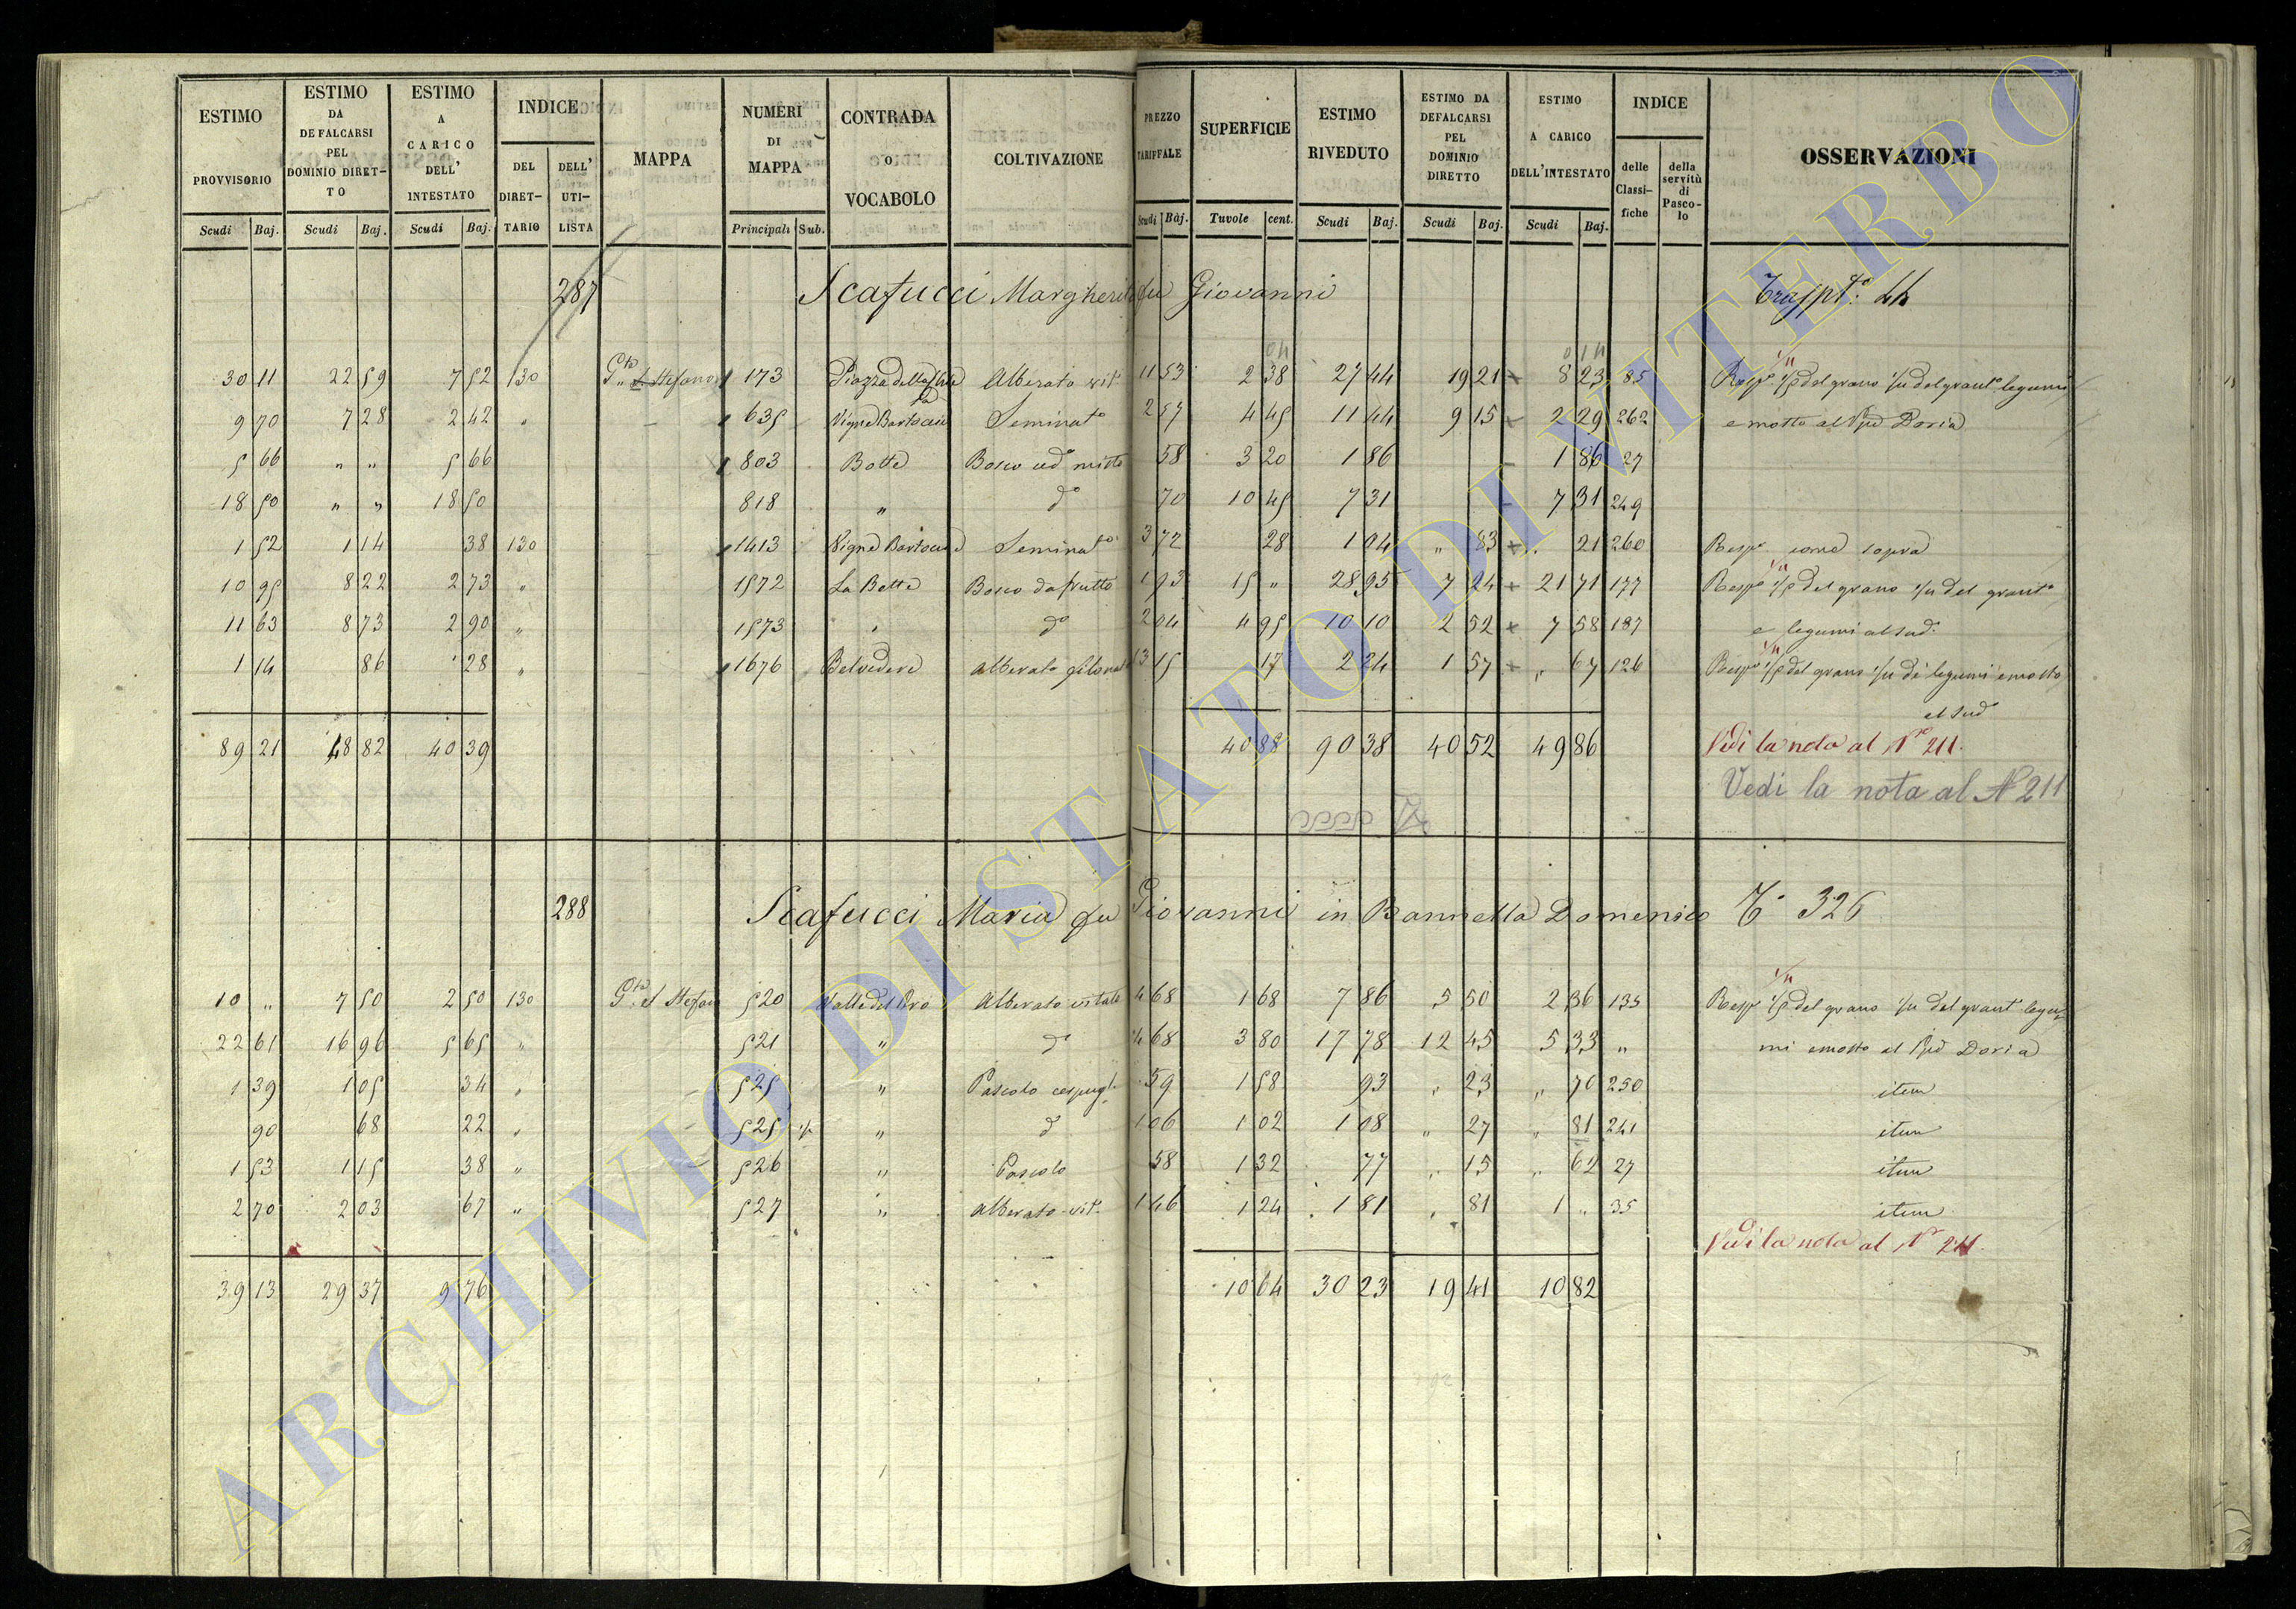 ESTIMO PROVVISORIO Scudi Baj.
ESTIMO DA DEFALCARSI PEL DOMINIO DIRETTO Scudi Baj.
ESTIMO A CARICO DELL' INTESTATO Scudi Baj.
INDICE DEL DIRETTARIO DELL' UTILISTA
MAPPA
NUMERI DI MAPPA Principali Sub.
CONTRADA O VOCABOLO
COLTIVAZIONE
PREZZO TARIFFALE Scudi Baj.
SUPERFICIE Tavole cent.
ESTIMO RIVEDUTO Scudi Baj.
ESTIMO DA DEFALCARSI PEL DOMINIO DIRETTO Scudi Baj.
ESTIMO A CARICO DELL'INTESTATO Scudi Baj.
INDICE delle Classifiche della servitù di Pascolo
OSSERVAZIONI
287 Scafucci Margherita fu Giovanni
30 11 22 59 7 52 130 S. Stefano 173 Alberato vit. 11 53 2 38 27 44 19 21 8 23 85 Resp. 1/5 del grano del grant. legumi
9 70 7 28 2 42 " 635 Vigna Bartoccini Seminato 2 57 4 45 11 44 9 15 2 29 262 e mosto al Doria
5 66 " " 5 66 803 Botte Bosco ced. misto 58 3 20 1 86 1 86 27
18 50 " " 18 50 818 " do 70 10 45 7 31 7 31 249
1 52 1 14 38 130 1413 Vigna Seminato 3 72 28 1 04 " 83 " 21 260 Resp. come sopra
10 95 8 22 2 73 " 1572 La Botte Bosco da frutto 1 93 15 " 28 95 7 24 21 71 177 Resp. 1/5 del grano del grant.
11 63 8 73 2 90 " 1573 " do 2 04 4 95 10 10 2 52 7 58 187 e legumi al sud.
1 14 86 28 " 1676 Belvedere Alberato 13 15 17 2 24 1 57 " 67 126 Resp. 1/5 del grano di legumi e mosto
al sud.
89 21 48 82 40 39 40 88 90 38 40 52 49 86 Vedi la nota al N° 211.
Vedi la nota al N 211
288 Scafucci Maria fu Giovanni in Bannella Domenico T° 326
10 " 7 50 2 50 130 S. Stefano 520 Valle del Oro Alberato vitato 4 68 1 68 7 86 5 50 2 36 135 Resp. 1/5 del grano del grant. legu
22 61 16 96 5 65 " 521 " do 4 68 3 80 17 78 12 45 5 33 " mi e mosto al Doria
1 39 1 05 34 " 525 " Pascolo cespugl. 59 1 58 93 " 23 " 70 250 item
90 68 22 " 525 " do 1 06 1 02 1 08 " 27 " 81 241 item
1 53 1 15 38 " 526 " Pascolo 58 1 32 77 " 15 " 62 27 item
2 70 2 03 67 " 527 " Alberato vit. 1 46 1 24 1 81 " 81 1 " 35 item
Vedi la nota al N° 211.
39 13 29 37 9 76 10 64 30 23 19 41 10 82
ARCHIVIO DI STATO DI VITERBO